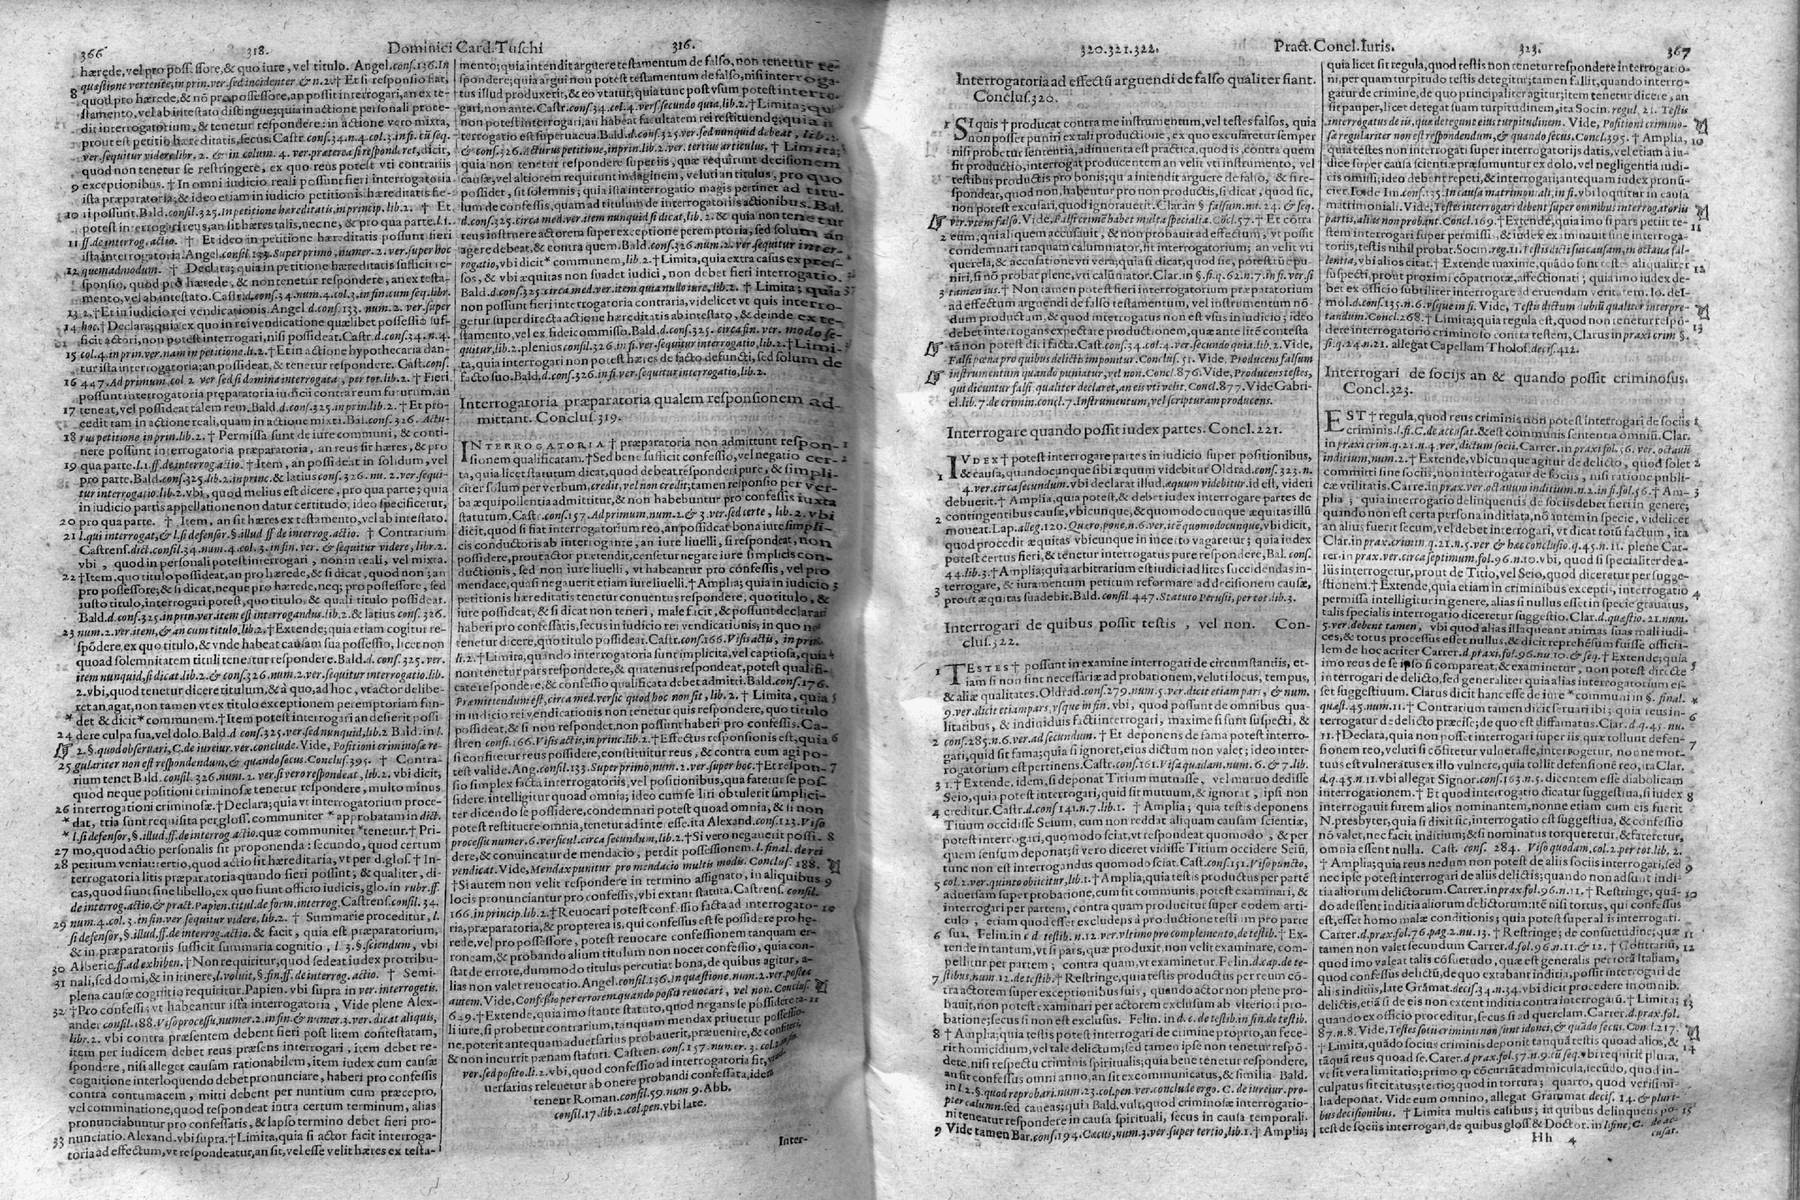 366 318. Dominici Card. Tuschi 316.
hærede, vel pro possessore, & quo iure, vel titulo. Angel. cons. 136. In
quæstione vertente, in prin. ver. sed incidenter & n. 2.
8 quod pro hærede, & nõ pro possessore, an possit interrogari, an ex te-
stamento, vel ab intestato distingue; quia in actione personali prote-
dit interrogatorium, & tenetur respondere: in actione vero mixta,
ver. sequitur videre libr. 2. & in colum. 4. ver. præterea si respondet, dicit,
quod non tenetur se restringere, ex quo reus potest vti contrariis
9 exceptionibus. † In omni iudicio reali possunt fieri interrogatoria
ista præparatoria; & ideo etiam in iudicio possessionis hæreditatis fie-
10 ri possunt. Bald. consil. 325. In petitione hæreditatis in princip. lib. 2. † Et
potest interrogari reus, an sit hæres talis, necne, & pro qua parte. l. 1.
11 ff. de interrog. actio. † Et ideo in petitione hæreditatis possunt fieri
12 quemadmodum. † Declara; quia in petitione hæreditatis sufficit re-
sponsio, quod pro hærede, & non tenetur respondere, an ex testa-
mento, vel ab intestato. Castr. d. cons. 34. num. 4. col. 3. in fin. cum seq. libr.
13 2. † Et in iudicio rei vendicationis. Angel. d. cons. 133. num. 2. ver. super
14 hoc. † Declara; quia ex quo in rei vendicatione quælibet possessio suf-
ficit actori, non potest interrogari, nisi possideat. Castr. d. cons. 34. n. 4.
15 col. 4. in prin. ver. nam in petitione. li. 2. † Et in actione hypothecaria dan-
tur ista interrogatoria; an possideat, & tenetur respondere. Cast. cons.
16 447. Ad primum. col. 2. ver. sed si domina interrogata, per tot. lib. 2. † Fieri
possunt interrogatoria præparatoria iudicii contra reum futurum, an
17 teneat, vel possideat talem rem. Bald. d. cons. 325. in prin. lib. 2. † Et pro-
cedit tam in actione reali, quam in actione mixti. Bal. cons. 326. Actu-
18 rus petitione in prin. lib. 2. † Permissa sunt de iure communi, & conti-
nere possunt interrogatoria præparatoria, an reus sit hæres, & pro
19 qua parte. l. 1. ff. de interrog. actio. † Item, an possideat in solidum, vel
pro parte. Bald. cons. 325. lib. 2. in princ. & latius cons. 326. nu. 2. ver. sequi-
tur interrogatio. lib. 2. vbi, quod melius est dicere, pro qua parte; quia
in iudicio partis appellatione non datur certitudo, ideo specificetur,
20 pro qua parte. † Item, an sit hæres ex testamento, vel ab intestato.
21 l. qui interrogat, & l. si defensor. §. illud ff. de interrog. † Contrarium
Castrens. dict. consil. 34. num. 4. col. 3. in fin. ver. & sequitur videre, libr. 2.
vbi, quod in personali potest interrogari, non in reali, vel mixta.
22 † Item, quo titulo possideat, an pro hærede, & si dicat, quod non; an
pro possessore; & si dicat, neque pro hærede, neq; pro possessore, sed
iusto titulo, interrogari potest, quo titulo, & quali titulo possideat.
Bald. cons. 325. in prin. ver. item est interrogandus. lib. 2. & latius cons. 326.
23 num. 2. ver. item, & an cum titulo, lib. 2. † Extende; quia etiam cogitur re-
spõdere, ex quo titulo, & vnde habeat causam sua possessio, licet non
quoad solemnitatem tituli teneatur respondere. Bald. d. cons. 325. ver.
item nunquid, si dicat. lib. 2. & cons. 326. num. 2. ver. sequitur interrogatio. lib.
2. vbi, quod tenetur dicere titulum, & à quo, ad hoc, vt actor delibe-
ret an agat, non tamen vt ex titulo exceptionem peremptoriam fun-
* det & dicit * communem. † Item potest interrogari an desierit possi-
24 dere culpa sua, vel dolo. Bald. d. cons. 325. ver. sed nunquid, lib. 2. Bald. in l.
2. §. quod obseruari, C. de iureiur. ver. conclude. Vide, Positioni criminosæ re-
25 gulariter non est respondendum, & quando secus. Conclus. 395. † Contra-
rium tenet Bald. consil. 326. num. 2. ver. si vero respondeat, lib. 2. vbi dicit,
quod neque positioni criminosæ tenetur respondere, multo minus
26 interrogationi criminosæ. † Declara; quia vt interrogatorium proce-
* dat, tria sunt requisita per gloss. communiter * approbatam in dict.
* l. si defensor, §. illud. ff. de interrog. actio. quæ communiter * tenetur. † Pri-
27 mo, quod actio personalis sit proponenda: secundo, quod certum
28 petitum veniat: tertio, quod actio sit hæreditaria, vt per d. glos. † In-
terrogatoria litis præparatoria quando fieri possint; & qualiter, di-
cas, quod siunt sine libello, ex quo fiunt officio iudicis, glo. in rubr. ff.
de interrog. actio. & pract. Papien. titul. de form. interrog. Castrens. consil. 34.
29 num. 4. col. 3. in fin. ver. sequitur videre, lib. 2. † Summarie proceditur, l.
si defensor, §. illud, ff. de interrog. actio. & facit, quia est præparatorium,
& in præparatoriis sufficit summaria cognitio, l. 3. §. sciendum, vbi
30 Alberic. ff. ad exhiben. † Non requiritur, quod sedeat iudex pro tribu-
31 nali, sed domi, & in itinere, l. voluit, §. fin. ff. de interrog. actio. † Semi-
plena causæ cognitio requiritur. Papien. vbi supra in ver. interrogetis.
32 † Pro confessi; vt habeantur ista interrogatoria, Vide plene Alex-
and. consil. 188. Viso processu, numer. 2. in fin. & numer. 3. ver. dicat aliquis,
libr. 2. vbi contra præsentem debent fieri post litem contestatam,
item per iudicem debet reus præsens interrogari, item debet re-
spondere, nisi alleget causam rationabilem, item iudex cum causæ
cognitione interloquendo debet pronunciare, haberi pro confessis
contra contumacem, mitti debent per nuntium cum præcepto,
vel comminatione, quod respondeat intra certum terminum, alias
pronunciabuntur pro confessatis, & lapso termino debet fieri pro-
33 nunciatio. Alexand. vbi supra. † Limita, quia si actor facit interroga-
toria ad effectum, vt respondeatur, an sit, vel esse velit hæres ex testa-
mento; quia intendit arguere testamentum de falso, non tenetur re-
spondere; quia argui non potest testamentum de falso, nisi interroga-
tus illud produxerit, & eo vtatur; quia tunc post vsum potest interro-
gari, non ante. Castr. cons. 34. col. 4. vers. secundo quia, lib. 2. † Limita; quia
non potest interrogari, an habeat facultatem rei restituendæ; quia in-
terrogatio est superuacua. Bald. d. cons. 325. ver. sed nunquid debeat, lib. 2.
& cons. 326. Acturus petitione, in prin. lib. 2. ver. tertius articulus. † Limita;
quia non tenetur respondere super iis; quæ requirunt decisionem
causæ, vel altiorem requirunt indaginem, veluti an titulus, pro quo
possidet, sit solemnis; quia ista interrogatio magis pertinet ad titu-
lum de confessis, quam ad titulum de interrogatoriis actionibus. Bal.
d. cons. 325. circa med. ver. item nunquid si dicat, lib. 2. & quia non tenetur
reus instruere actorem super exceptione peremptoria, sed solum an
agere debeat, & contra quem. Bald. cons. 326. num. 2. ver. sequitur inter-
rogatio, vbi dicit * communem, lib. 2. † Limita, quia extra casus expres-
sos, & vbi æquitas non suadet iudici, non debet fieri interrogatio.
Bald. d. cons. 325. circa med. ver. item quia nullo iure, lib. 2. † Limita; quia 37
non possunt fieri interrogatoria contraria, videlicet vt quis interro-
getur super directa actione hæreditatis ab intestato, & deinde ex te-
stamento, vel ex fideicommisso. Bald. d. cons. 325. circa fin. ver. modo se-
quitur, lib. 2. plenius cons. 326. in fi. ver. sequitur interrogatio, lib. 2. † Limi-
ta, quia interrogari non potest an sit hæres de facto defuncti, sed solum de
facto suo. Bald. d. cons. 326. in fi. ver. sequitur interrogatio, lib. 2.
Interrogatoria præparatoria qualem responsionem ad-
mittant. Conclus. 319.
INTERROGATORIA † præparatoria non admittunt respon- 1
sionem qualificatam. † Sed bene sufficit confessio, vel negatio cer- 2
ta, quia licet statutum dicat, quod debeat responderi pure, & simpli-
citer solum per verbum, credit, vel non credit; tamen responsio per ver-
ba æquipolentia admittitur, & non habebuntur pro confessis iuxta
statutum. Castr. cons. 157. Ad primum, num. 2. & 3. ver. sed certe, lib. 2. vbi
dicit, quod si fiat interrogatorium reo, an possideat bona iure simpli-
cis conductoris ab interrogante, an iure liuelli, si respondeat, non
possidere, prout actor prætendit, censetur negare iure simplicis con-
ductionis, sed non iure liuelli, vt habeatur pro confesso, vel pro
mendace, quasi negauerit etiam iure liuelli. † Amplia; quia in iudicio 3
petitionis hæreditatis tenetur conuentus respondere, quo titulo, &
iure possideat, & si dicat non teneri, male facit, & possunt declarari
haberi pro confessatis, secus in iudicio rei vendicationis; in quo ne
tenetur dicere, quo titulo possideat. Castr. cons. 166. Visis actis, in prin.
li. 2. † Limita, quando interrogatoria sunt implicita, vel captiosa, quia 4
non tenetur pars respondere, & quatenus respondeat, potest qualifi-
cate respondere, & confessio qualificata debet admitti. Bald. cons. 176.
Præmittendum est, circa med. versic. quod hoc non sit, lib. 2. † Limita, quia 5
in iudicio rei vendicationis non tenetur quis respondere, quo titulo
possideat, & si non respondet, non possunt haberi pro confessis. Ca-
stren. cons. 166. Visis actis, in princ. lib. 2. † Effectus responsionis est, quia 6
si confitetur reus possidere, constituitur reus, & contra eum agi po-
test valide. Ang. consil. 133. Super primo, num. 2. ver. super hoc. † Et respon- 7
sio simplex facta interrogatoriis, vel positionibus, qua fatetur se pos-
sidere, intelligitur quoad omnia; ideo cum se liti obtulerit simplici-
ter dicendo se possidere, condemnari potest quoad omnia, & si non
potest restituere omnia, tenetur ad interesse. ita Alexand. cons. 123. Viso
processu numer. 6. versicul. circa secundum, lib. 2. † Si vero negauerit possi- 8
dere, & conuincatur de mendacio, perdit possessionem. l. final. de rei
vendicat. Vide, Mendax punitur pro mendacio multis modis. Conclus. 188.
† Si autem non velit respondere in termino assignato, in aliquibus 9
locis pronunciantur pro confessatis, vbi extant statuta. Castrens. consil.
166. in princip. lib. 2. † Reuocari potest confessio facta ad interrogato- 10
ria, præparatoria, & propterea is, qui confessus est se possidere pro hæ-
rede, vel pro possessore, potest reuocare confessionem tanquam er-
roneam, & probando alium titulum non nocet confessio, quia con-
stat de errore, dummodo titulus percutiat bona, de quibus agitur, a-
lias non valet reuocatio. Angel. consil. 136. In quæstione, num. 2. ver. postea
autem. Vide, Confessio per errorem quando possit reuocari, vel non. Conclus.
649. † Extende, quia imo stante statuto, quod negans se possidere ta- 11
li iure, si probetur contrarium, tanquam mendax priuetur possessio-
ne, poterit antequam aduersarius probauerit, præuenire, & confiteri,
& non incurrit pœnam statuti. Castren. cons. 157. numer. 3. col. 2.
ver. sed posito. li. 2. vbi, quod confessio ad interrogatoria sit,
uersarius releuetur ab onere probandi confessata, idem
tenet Roman. consil. 59. num 9. Abb.
consil. 17. lib. 2. col. pen. vbi late.
Inter-
320. 321. 322. Pract. Concl. Iuris. 323. 367
Interrogatoria ad effectũ arguendi de falso qualiter fiant.
Conclus. 320.
1 SI quis † producat contra me instrumentum, vel testes falsos, quia
non posset puniri ex tali productione, ex quo excusaretur semper
nisi probetur sententia, adinuenta est practica, quod is, contra quem
sit productio, interroget producentem an velit vti instrumento, vel
testibus productis pro bonis; quia intendit arguere de falso, & si re-
spondeat, quod non, habentur pro non productis, si dicat, quod sic,
non excusatur, quod ignorauerit. Clar. in §. falsum. nu. 24. & seq.
ver. viens falso. Vide, Falsi crimẽ habet multa specialia. Cõcl. 57. † Et cõtra
2 eum, qui aliquem accusauit, & non probauit ad effectum, vt possit
condemnari tanquam calumniator, fit interrogatorium; an velit vti
querela, & accusatione vti vera; quia si dicat, quod sic, poterit tũc pu-
niri, si nõ probat plene, vti calũniator. Clar. in §. fi. q. 62. n. 7. in fi. ver. si
3 tamen ius. † Non tamen potest fieri interrogatorium præparatorium
ad effectum arguendi de falso testamentum, vel instrumentum nõ-
dum productum, & quod interrogatus non est vsus in iudicio; ideo
debet interrogans expectare productionem, quæ ante litẽ contesta
tã non potest dici facta. Castr. cons. 34. col. 4. ver. secundo quia. lib. 2. Vide,
Falsi pœna pro quibus delictis imponitur. Conclus. 51. Vide, Producens falsum
instrumentum quando puniatur, vel non. Concl. 876. Vide, Producens testes,
qui dicuntur falsi qualiter declaret, an eis vti velit. Concl. 877. Vide Gabri-
el. lib. 7. de crimin. concl. 7. Instrumentum, vel scripturam producens.
Interrogare quando possit iudex partes. Concl. 221.
1 IVDEX † potest interrogare partes in iudicio super positionibus,
& causa, quandocunque sibi æquum videbitur Oldrad. cons. 323. n.
4. ver. circa secundum. vbi declarat illud. æquum videbitur. id est, videri
debuerit. † Amplia, quia potest, & debet iudex interrogare partes de
2 contingentibus causæ, vbicunque, & quomodocunque æquitas illũ
moueat. Lap. alleg. 120. Quero, pone, n. 6. ver. itẽ quomodocunque, vbi dicit,
quod procedit æquitas vbicunque in incerto vagaretur; quia iudex
potest certus fieri, & tenetur interrogatus pure respondere, Bal. cons.
44. lib. 3. † Amplia; quia arbitrarium est iudici ad lites succidendas in-
terrogare, & iuramentum petitum reformare ad decisionem causæ,
3 prout æquitas suadebit. Bald. consil. 447. Statuto Perusii, per tot. lib. 3.
Interrogari de quibus possit testis, vel non. Con-
clus. 322.
1 TESTES † possunt in examine interrogari de circumstantiis, et-
iam si non sint necessariæ ad probationem, veluti locus, tempus,
& aliæ qualitates. Oldrad. cons. 279. num. 5. ver. dicit etiam pari, & num.
9. ver. dicit etiam pars, vsque in fin. vbi, quod possunt de omnibus qua-
litatibus, & indiuiduis facti interrogari, maxime si sunt suspecti, &
2 cons. 285. n. 6. ver. ad secundum. † Et deponens de fama potest interro-
gari, quid sit fama; quia si ignoret, eius dictum non valet; ideo inter-
rogatorium est pertinens. Castr. cons. 161. Visa quadam. num. 6. & 7. lib.
3 1. † Extende, idem, si deponat Titium mutuasse, vel mutuo dedisse
Seio, quia potest interrogari, quid sit mutuum, & ignorat, ipsi non
4 creditur. Castr. d. cons. 141. n. 7. lib. 1. † Amplia; quia testis deponens
Titium occidisse Seium, cum non reddat aliquam causam scientiæ,
potest interrogari, quomodo sciat, vt respondeat quomodo, & per
quem sensum deponat; si vero diceret vidisse Titium occidere Seiũ,
tunc non est interrogandus quomodo sciat. Cast. cons. 151. Viso puncto,
5 col. 2. ver. quinto obiicitur, lib. 1. † Amplia, quia testis productus per partẽ
aduersam super probatione, cum sit communis, potest examinari, &
interrogari per partem, contra quam producitur super eodem arti-
culo, etiam quod esset excludens à productione testium pro parte
6 sua. Felin. in c. d. testib. n. 12. ver. vltimo pro complemento, de testib. † Ex-
tende in tantum, vt si pars, quæ produxit, non velit examinare, com-
pellitur per partem; contra quam, vt examinetur. Felin. d. cap. de te-
7 stibus, num. 12. de testib. † Restringe, quia testis productus per reum cõ-
tra actorem super exceptionibus suis, quando actor non plene pro-
bauit, non potest examinari per actorem exclusum ab vlteriori pro-
batione; secus si non est exclusus. Felin. in d. c. de testib. in fin. de testib.
8 † Amplia; quia testis potest interrogari de crimine proprio, an fece-
rit homicidium, vel tale delictum; sed tamen ipse non tenetur respõ-
dere, nisi respectu criminis spiritualis; quia bene tenetur respondere,
an sit confessus omni anno, an sit excommunicatus, & similia. Bald.
in l. 2. §. quod reprobari. num. 23. col. pen. ver. conclude ergo. C. de iureiur. pro-
pter calumn. sed caueas; quia Bald. vult, quod criminosæ interrogatio-
ni tenetur respondere testis in causa spirituali, secus in causa temporali.
9 Vide tamen Bar. cons. 194. Cæcus, num. 3. ver. super tertio, lib. 1. † Amplia;
quia licet sit regula, quod testis non tenetur respondere interrogatio-
ni, per quam turpitudo testis detegitur; tamen fallit, quando interro-
gatur de crimine, de quo principaliter agitur; item tenetur dicere, an
sit pauper, licet detegat suam turpitudinem, ita Socin. regul. 21. Testis
interrogatus de iis, quæ detegunt eius turpitudinem. Vide, Positioni crimino-
sæ regulariter non est respõdendum, & quando secus. Concl. 395. † Amplia, 10
quia testes non interrogati super interrogatorijs datis, vel etiam à iu-
dice super causa scientiæ præsumuntur ex dolo, vel negligentia iudi-
cis omissi; ideo debent repeti, & interrogari; antequam iudex pronũ-
ciet Io. de Im. cons. 135. In causa matrimoniali, in fi. vbi loquitur in causa
matrimoniali. Vide, Testis interrogari debent super omnibus interrogatoriis
partis, aliis non probant. Concl. 169. † Extende, quia imo si pars petit te- 11
stem interrogari super permissi, & iudex ex imminauit sine interroga-
toriis, testis nihil probat. Socin. reg. 11. Testis dicti sui causam, in octaua fal-
lentia, vbi alios citat. † Extende maxime, quãdo sunt testes aliqualiter 12
suspecti, prout proximi cõpatriotæ, affectionati; quia imo iudex de-
bet ex officio subtiliter interrogare ad eruendam veritatem. Io. de Im-
mol. d. cons. 135. n. 6. vsque in fi. Vide, Testis dictum dubiũ qualiter interpre-
tandum. Concl. 268. † Limita; quia regula est, quod non tenetur respõ- 13
dere interrogatorio criminoso contra testem, Clarus in praxi crim. §.
fi. q. 24. n. 21. allegat Capellam Tholos. decis. 412.
Interrogari de socijs an & quando possit criminosus.
Concl. 323.
EST † regula, quod reus criminis non potest interrogari de sociis 1
criminis. l. fi. C. de accusat. & est communis sententia omniũ. Clar.
in praxi crim. q. 21. n. 4. ver. dictum socii. Carrer. in praxi fol. 56. ver. octauũ
inditium, num 2. † Extende, vbicunque agitur de delicto, quod solet 2
committi sine sociis, non potest interrogari reus, nisi ratione publi-
cæ vtilitatis. Carre. in prax. ver. octauum indicium. n. 2. in fi. fol. 56. † Am- 3
plia; quia interrogatio delinquentis de sociis debet fieri in genere;
quando non est certa persona inditiata, nõ autem in specie, videlicet
an alius fuerit secum, vel debet interrogari, vt dicat totũ factum, ita
Clar. in prax. crimin. q. 21. n. 5. ver & hæc conclusio. q. 45. n. 11. plene Car-
rer. in prax. ver. circa septimum. fol. 96. n. 10. vbi, quod si specialiter de a-
liis interrogetur, prout de Titio, vel Seio, quod diceretur per sugge-
stionem. † Extende, quia etiam in criminibus excepti, interrogatio 4
permissa intelligitur in genere, alias si nullus esset in specie grauatus,
talis specialis interrogatio diceretur suggestio. Clar. d. quæstio. 21. num.
5. ver. debent tamen, vbi quod alias illaqueant animas suas mali iudi-
ces, & totus processus esset nullus, & dicit reprehẽsum fuisse officia-
lem de hoc acriter Carrer. d. praxi. fol. 96. nu. 10. & seq. † Extende; quia 5
imo reus de se ipso si compareat, & examinetur, non potest directe
interrogari de delicto, sed generaliter quia alias interrogatorium es-
set suggestiuum. Clarus dicit hanc esse de iure * communi in §. final. *
quæst. 45. num. 11. † Contrarium tamen dicit seruari ibi; quia reus in- 6
terrogatur de delicto præcise; de quo est diffamatus. Clar. d. q. 45. nu.
11. † Declara, quia non potest imponi reo super iis, quæ tollunt defen- 7
sionem reo, veluti si cõfitetur vulnerasse, interrogetur, nonne mor-
tuus est vulneratus ex illo vulnere, quia tollit defensionẽ reo, ita Clar.
d. q. 45. n. 11. vbi allegat Signor. cons. 163. n. 5. dicentem esse diabolicam
interrogationem. † Et quod interrogatio dicatur suggestiua, si iudex 8
interrogauit furem alios nominantem, nonne etiam cum eis fuerit
N. presbyter, quia si dixit, sic, interrogatio est suggestiua, & confessio
nõ valet, nec facit inditium; & si nominatus torqueretur, & fateretur,
omnia essent nulla. Cast. cons. 284. Viso quodam, col. 2. per tot. lib. 2.
† Amplia; quia reus nedum non potest de aliis sociis interrogari, sed 9
nec ipse potest interrogari de aliis delictis; quando non adsunt indi-
tia aliorum delictorum. Carrer. in prax. fol. 96. n. 11. † Restringe, quã- 10
do adessent inditia aliorum delictorum: itẽ nisi tortus, qui confessus
est, esset homo malæ conditionis; quia potest super aliis interrogari.
Carrer. d. prax. fol. 76. pag. 2. nu. 13. † Restringe; de consuetudine; quæ 11
tamen non valet secundum Carrer. d. fol. 96. n. 11. & 12. † Contrariũ, 12
quod imo valeat talis cõsuetudo, quæ est generalis per totã Italiam,
quod confessus delictũ, de quo extabant inditia, possit interrogari de
aliis inditiis, late Grãmat. decis. 34. n. 34. vbi dicit procedere in omnib.
delictis, etiã si de eis non extent inditia contra interrogatũ. † Limita; 13
quando ex officio proceditur, secus si ad querelam. Carrer. d. prax. fol.
87. n. 8. Vide, Testes socii criminis non sunt idonei, & quãdo secus. Concl. 217.
† Limita, quãdo socius criminis deponit tanquã testis quoad alios, & 14
tãquã reus quoad se. Carer. d. prax. fol. 57. n. 9. cũ seq. * vbi requirit plura,
vt sit vera limitatio; primo quod cõcurrãt adminicula, secũdo, quod in-
culpatus sit citatus; tertio; quod in tortura; quarto, quod verisimi-
lia deponat. Vide eum omnino, allegat Grammat decis. 14. & pluri-
bus decisionibus. † Limita multis casibus; in quibus delinquens po- 15
test de sociis interrogari, de quibus gloss & Doctor. in l. fine, C. de ac-
cusat.
Hh 4